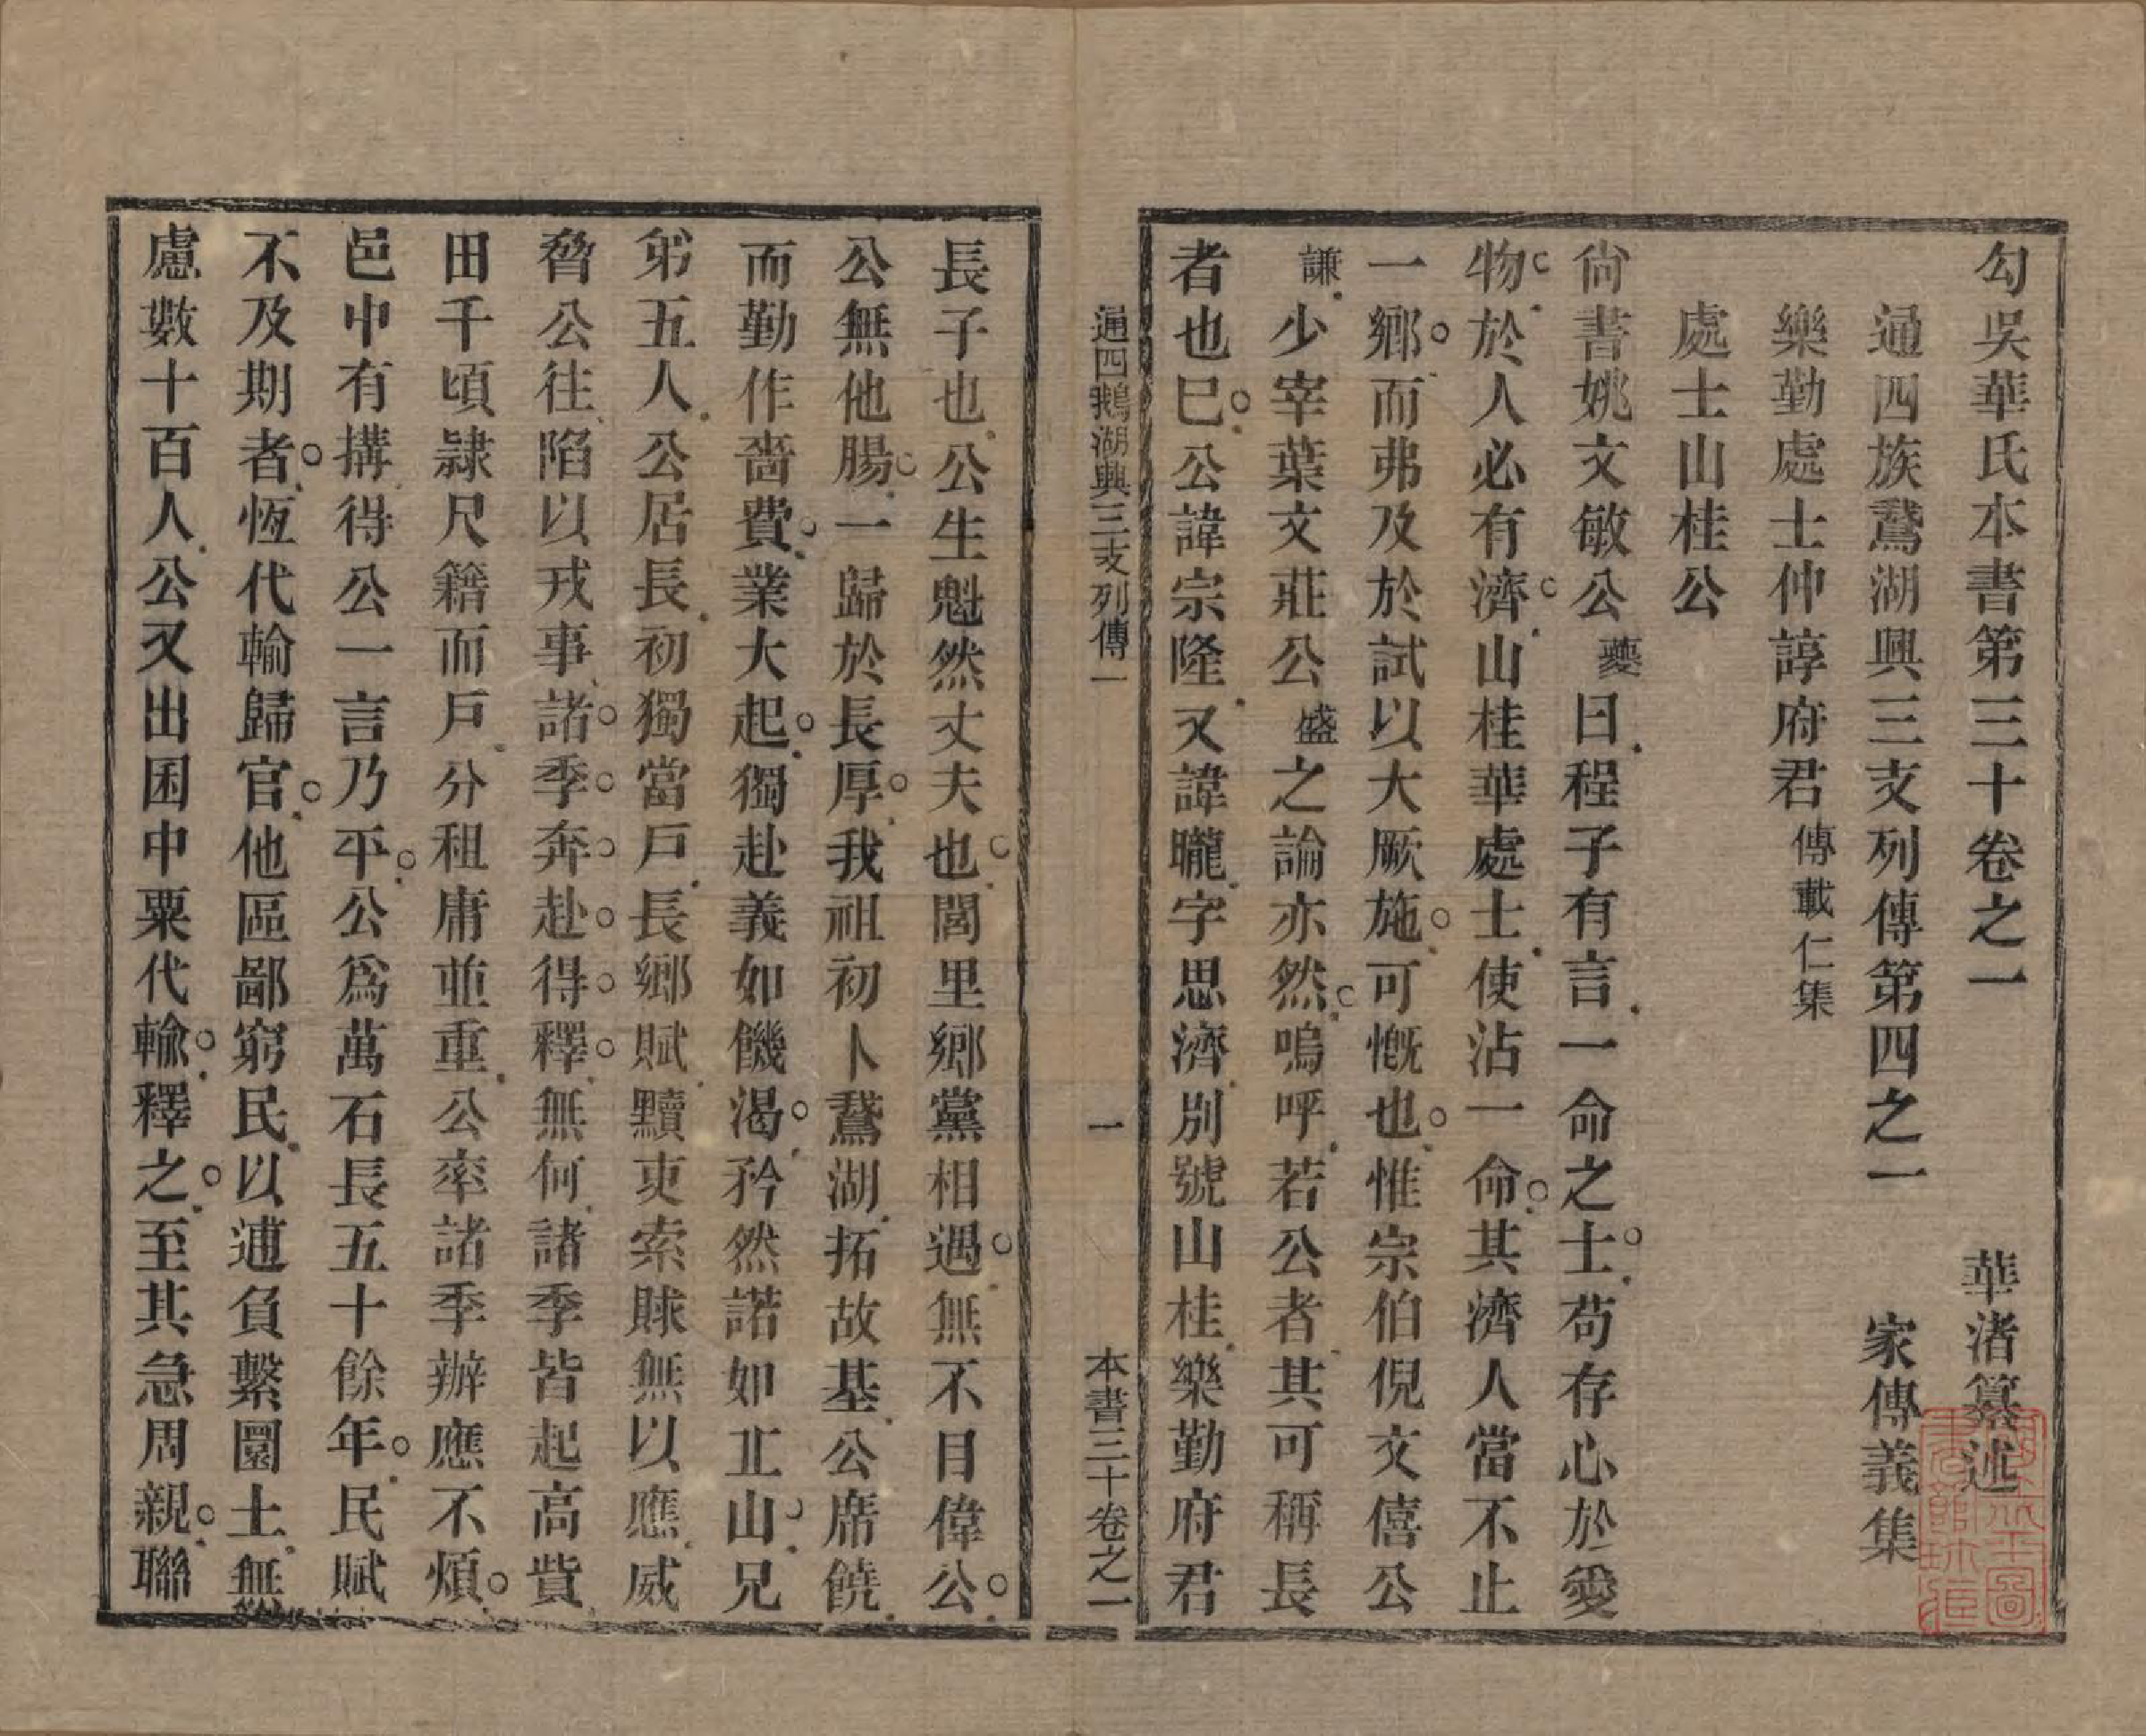 勾吳華氏本書第三十卷之一　華渚纂述
通四族鵞湖興三支列傳第四之一　家傳義集
樂勤處士仲諄府君傳載仁集
處士山桂公
尙書姚文敏公夔曰程子有言一命之士苟存心於愛
物於人必有濟山桂華處士使沾一命其濟人當不止
一鄉而弗及於試以大厥施可慨也惟宗伯倪文僖公
謙少宰葉文莊公盛之論亦然嗚呼若公者其可稱長
者也已公諱宗隆又諱曨字思濟別號山桂樂勤府君
通四鵞湖興三支列傳一　一　本書三十卷之一
長子也公生魁然丈夫也閭里鄉黨相遇無不目偉公
公無他腸一歸於長厚我祖初卜鵞湖拓故基公席饒
而勤作嗇費業大起獨赴義如饑渴矜然諾如丘山兄
弟五人公居長初獨當戶長鄉賦黷吏索賕無以應威
脅公往陷以戎事諸季奔赴得釋無何諸季皆起高貲
田千頃隷尺籍而戶分租庸並重公率諸季辦應不煩
邑中有搆得公一言乃平公爲萬石長五十餘年民賦
不及期者恆代輸歸官他區鄙窮民以逋負繫圜土無
慮數十百人公又出囷中粟代輸釋之至其急周親聯